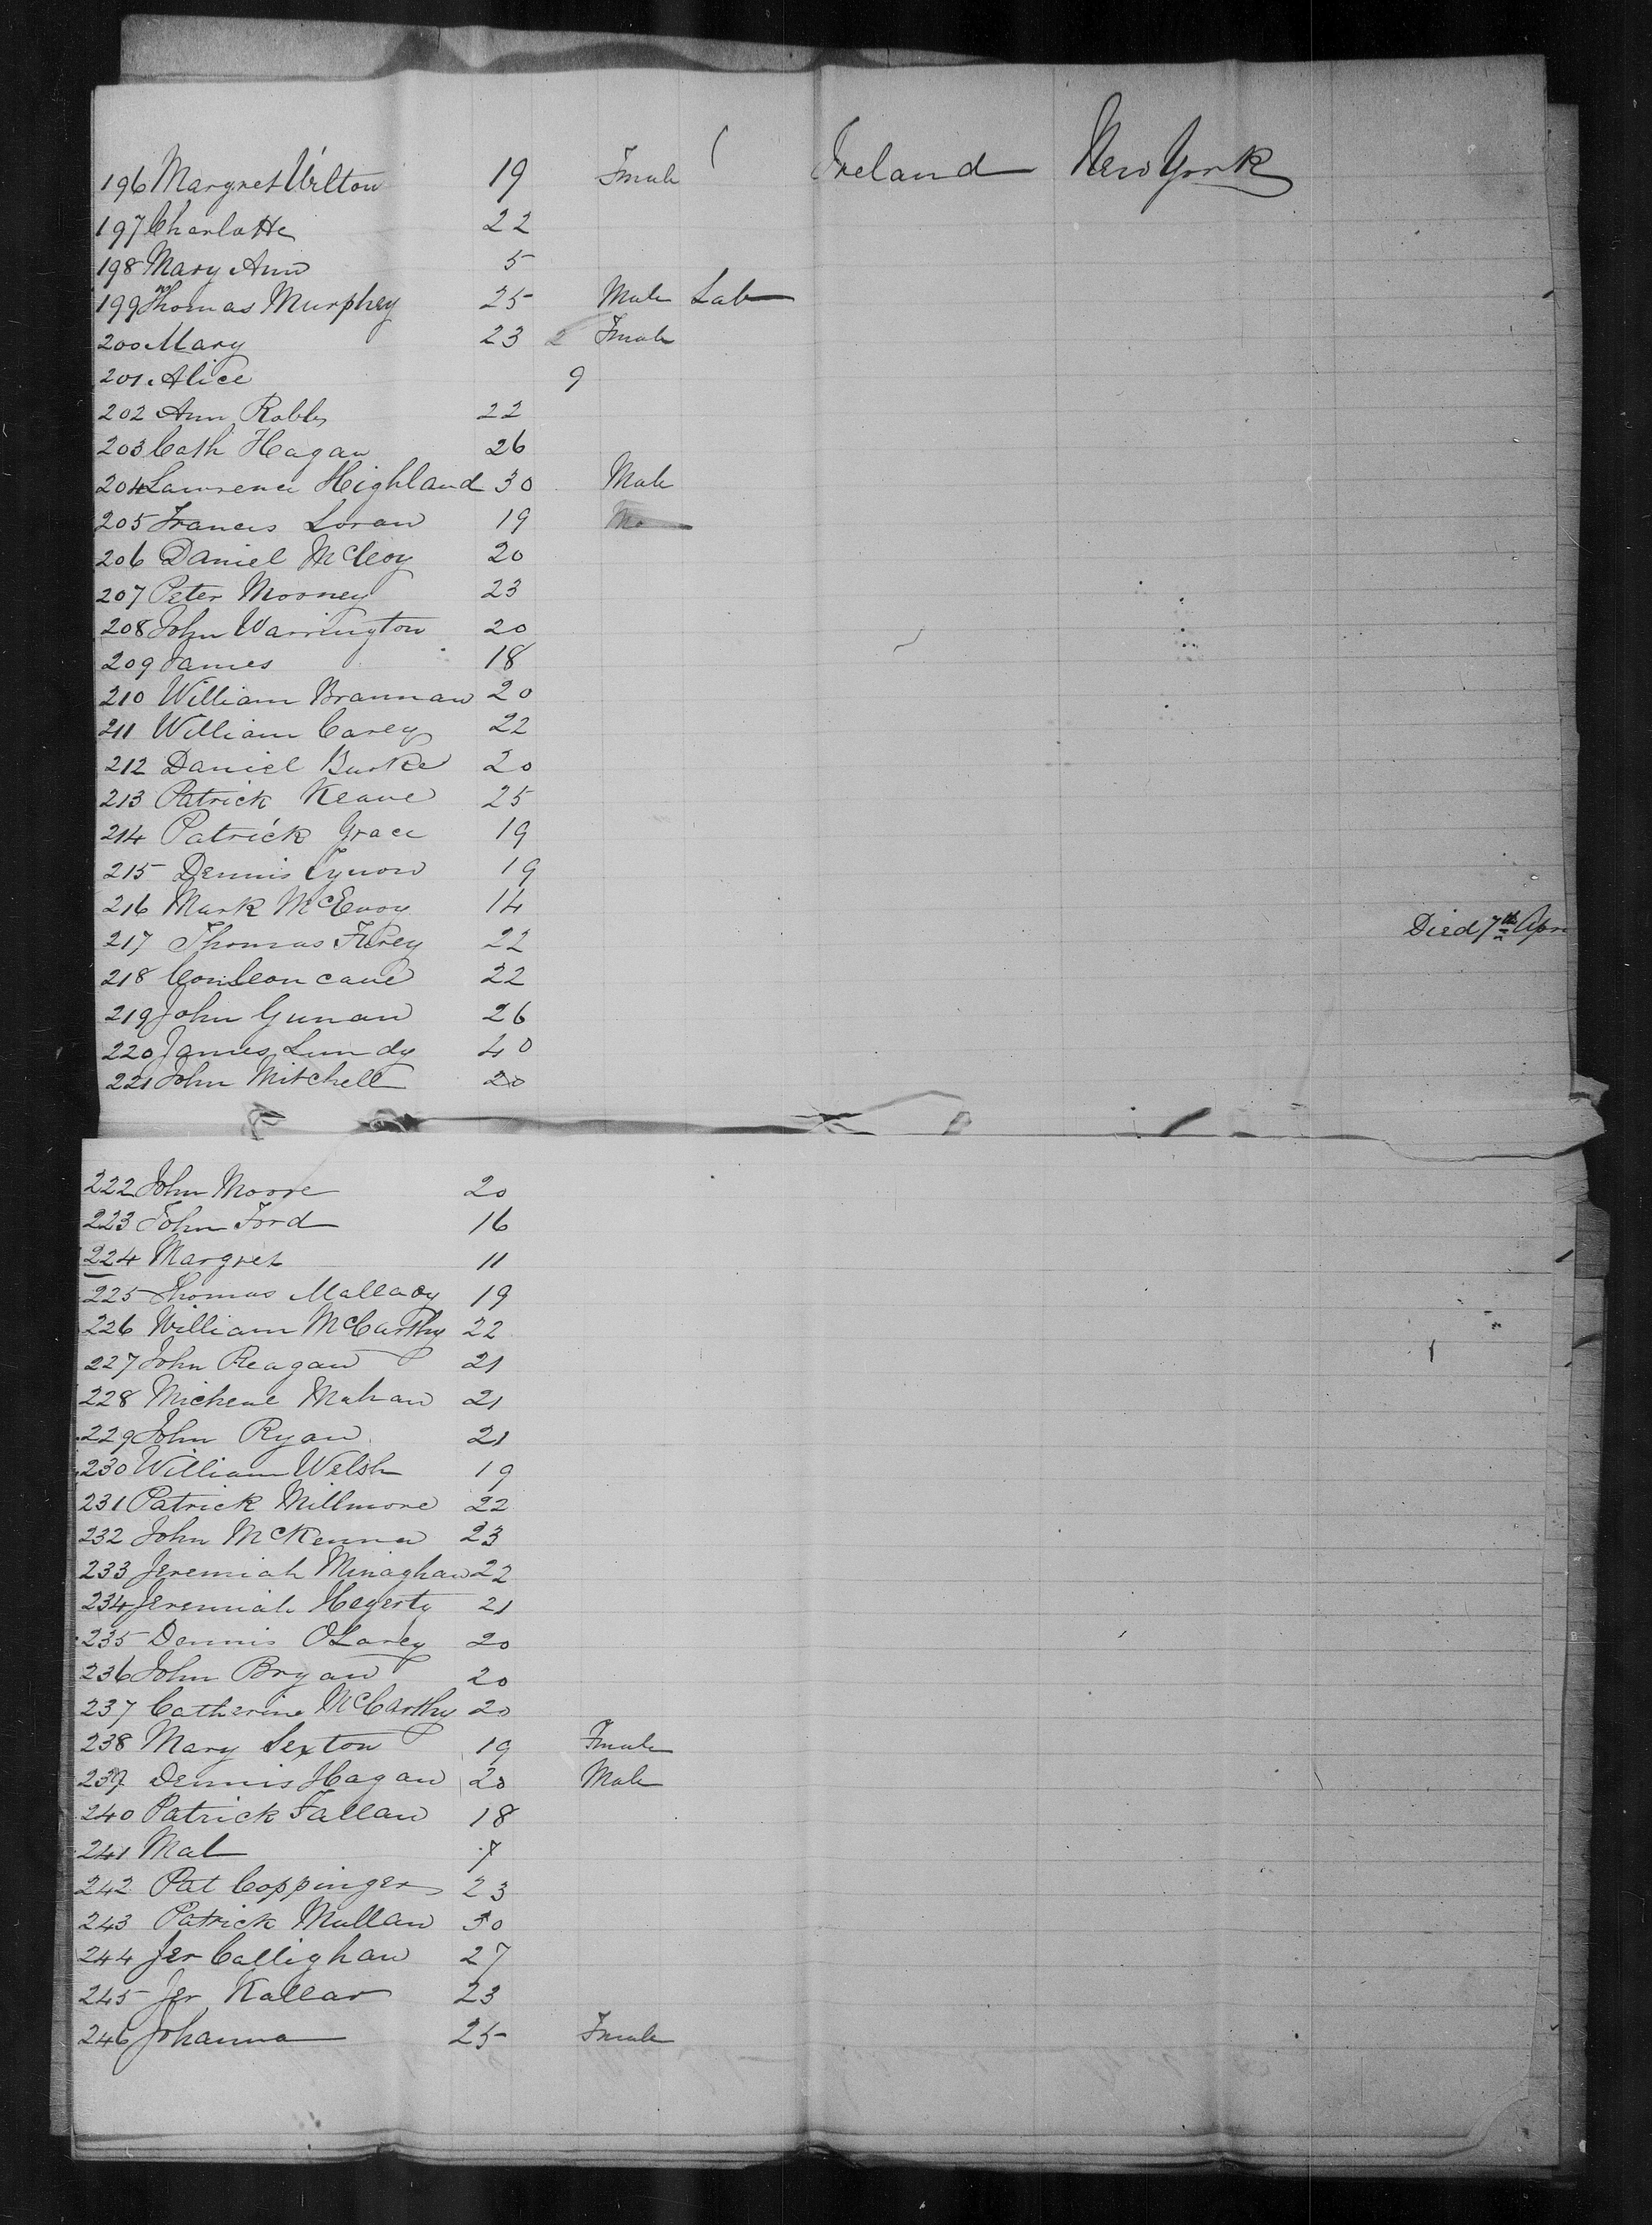 196 Margret Wilton 19 Female Ireland New York
197 Charlotte 22
198 Mary Ann 5
199 Thomas Murphey 25 Male Lab
200 Mary 23 Female
201 Alice 9
202 Ann Robbs 22
203 Cath Hagan 26
204 Lawrence Highland 30 Male
205 Francis Loran 19
206 Daniel McLeoy 20
207 Peter Mooney 23
208 John Warrington 20
209 James 18
210 William Brannan 20
211 William Carey 22
212 Daniel Burke 20
213 Patrick Keane 25
214 Patrick Grace 19
215 Dennis 19
216 Mark McEvoy 14
217 Thomas Furey 22 Died 7th Apr
218 22
219 John Gunan 26
220 James Lundy 40
221 John Mitchell 20
222 John Moore 20
223 John Ford 16
224 Margret 11
225 Thomas Mallady 19
226 William McCarthy 22
227 John Reagan 21
228 Micheal Mahan 21
229 John Ryan 21
230 William Welsh 19
231 Patrick Millmore 22
232 John McKenna 23
233 Jeremiah Minaghan 22
234 Jeremiah Hegerty 21
235 Dennis OLarey 20
236 John Bryan 20
237 Catherine McCarthy 20
238 Mary Sexton 19 Female
239 Dennis Hagan 20 Male
240 Patrick Fallan 18
241 Mal 7
242 Pat Coppinger 23
243 Patrick Mullan 30
244 Jer Callighan 27
245 Jer Kallar 23
246 Johanna 25 Female